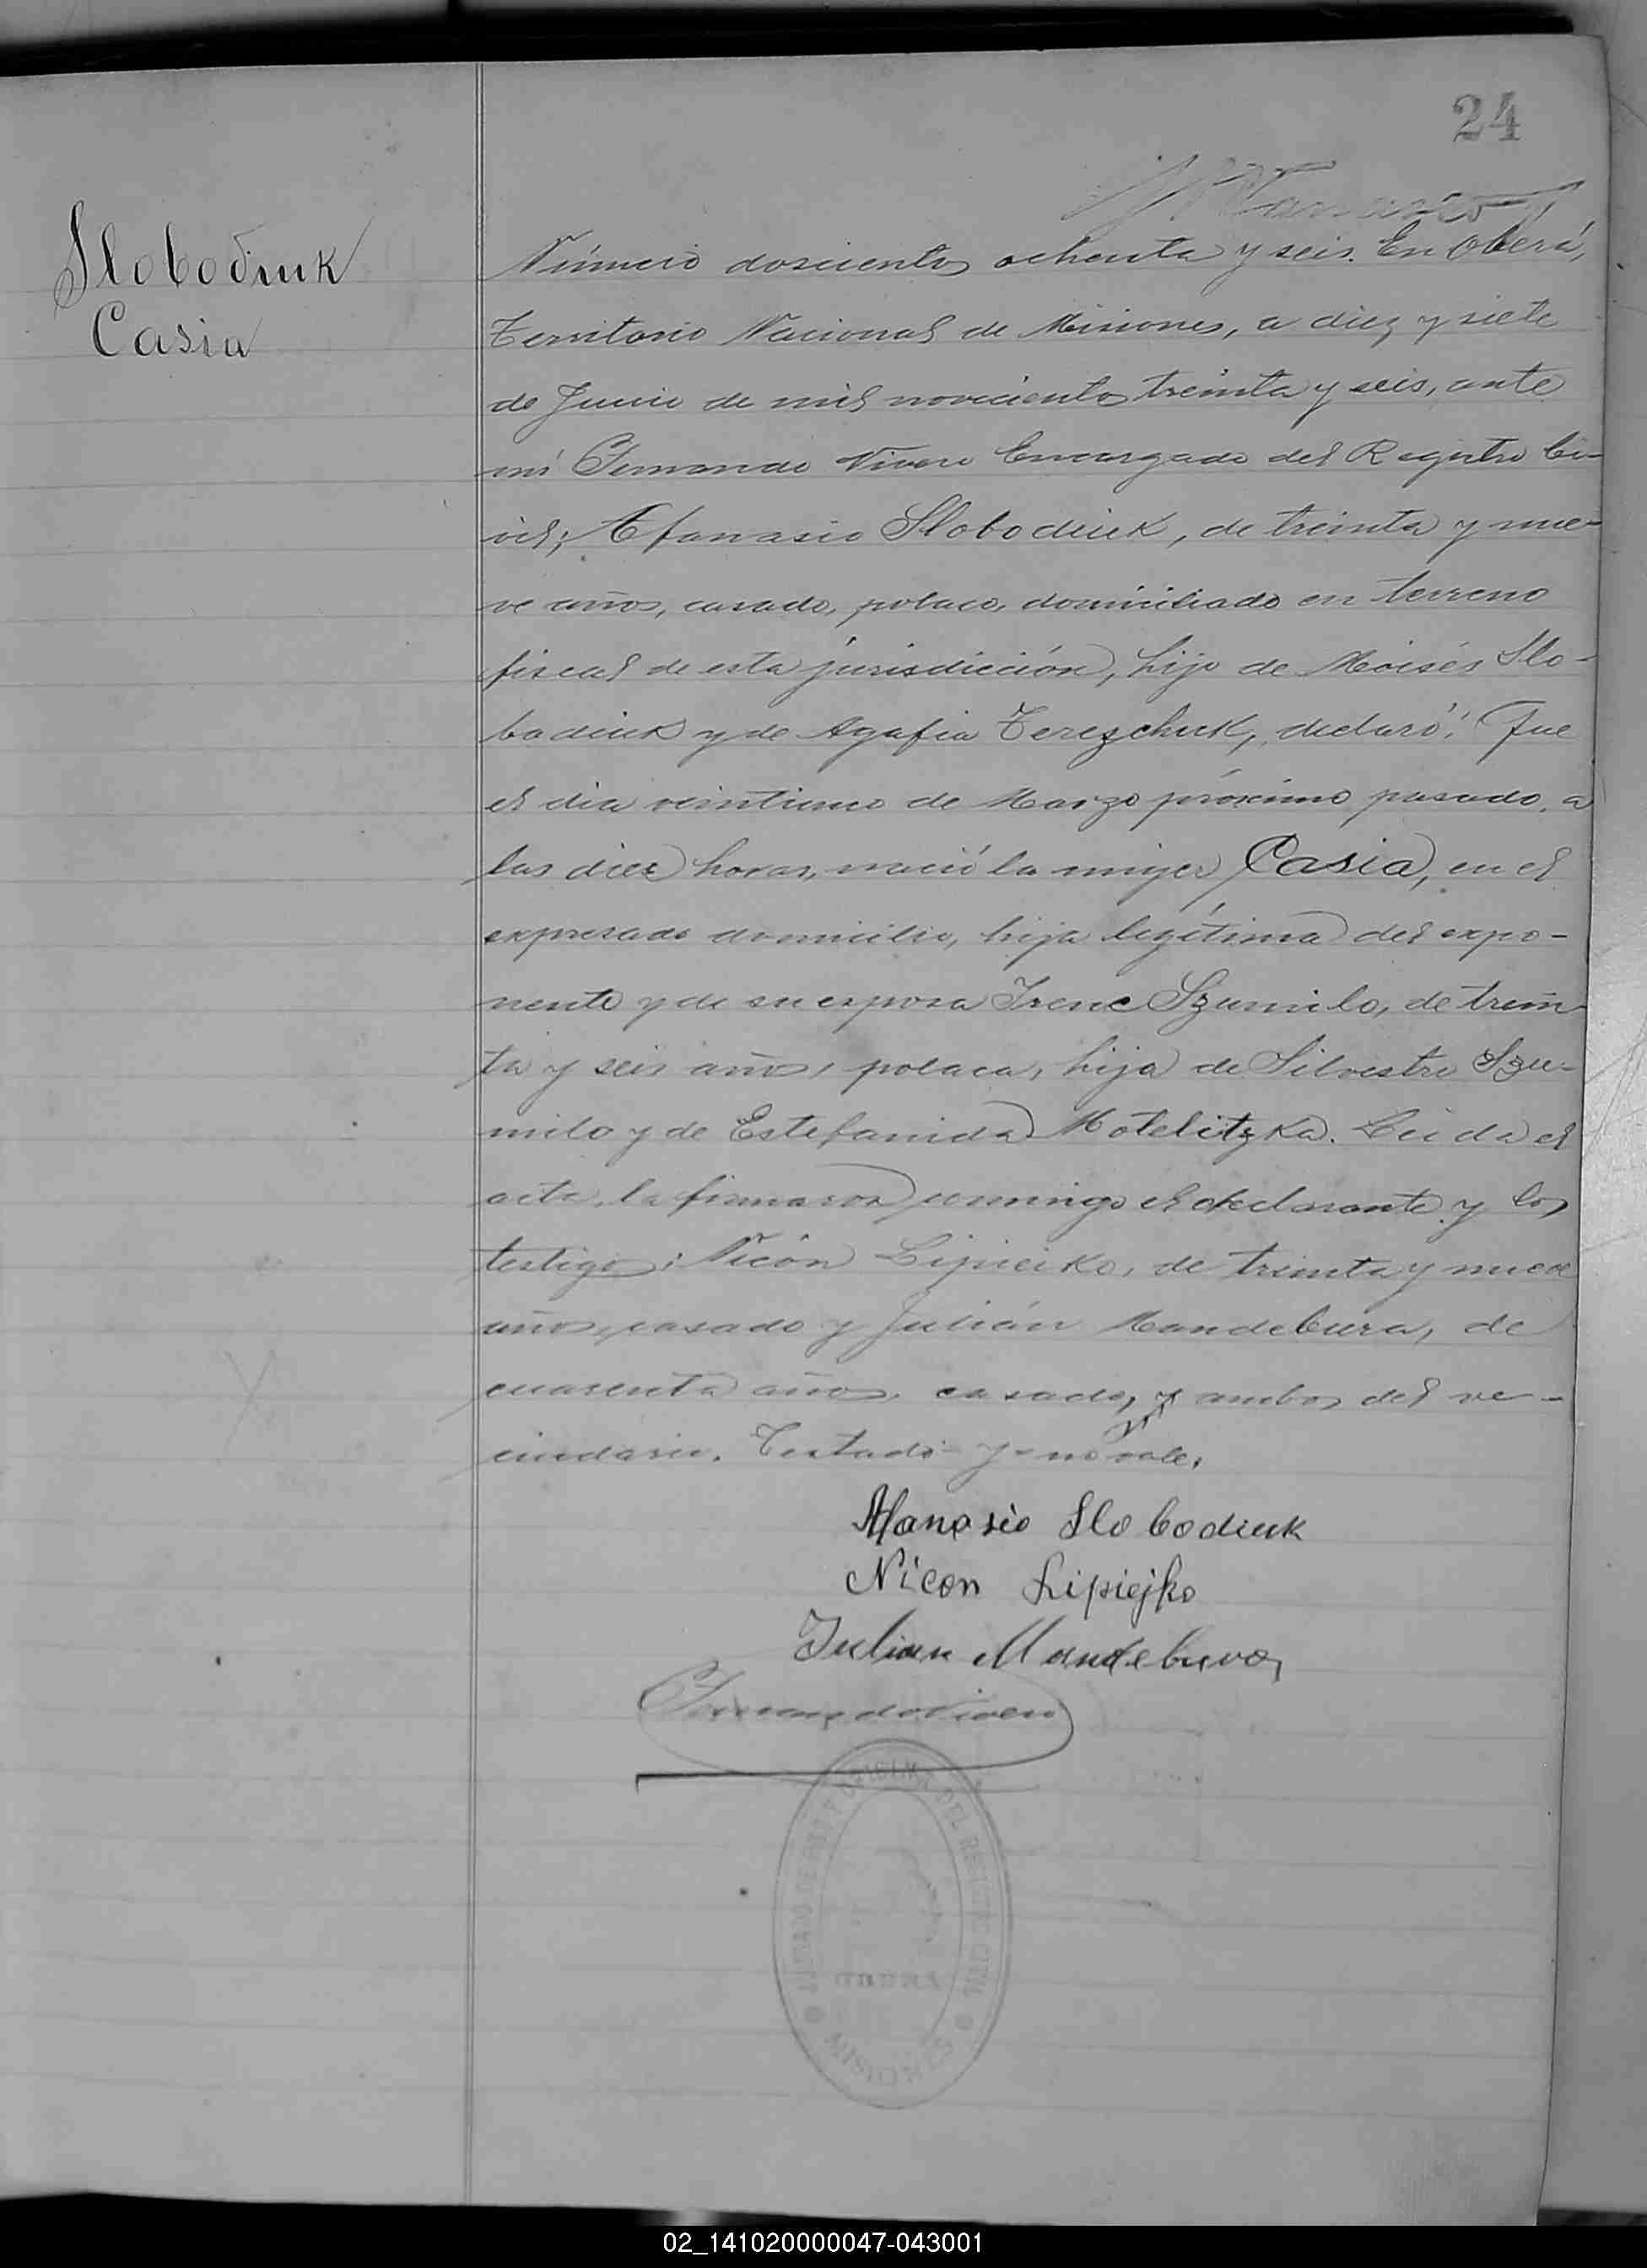 24
Slobodiuk
Casia
Número doscientos ochenta y seis. En Oberá,
Territorio Nacional de Misiones, a diez y siete
de Junio de mil novecientos treinta y seis, ante
mí Fernando Vivero Encargado del Registro Ci-
vil; Afanasio Slobodiuk, de treinta y nue-
ve años, casado, polaco, domiciliado en terreno
fiscal de esta jurisdicción, hijo de Moisés Slo-
bodiuk y de Agafia Terezchuk, declaró: Que
el día veintiuno de Marzo próximo pasado, a
las diez horas, nació la mujer Casia, en el
expresado domicilio, hija legítima del expo-
nente y de su esposa Irene Szumilo, de trein-
ta y seis años, polaca, hija de Silvestre Szu-
milo y de Estefanida Motelitzka. Leida el
acta, la firmaron conmigo el declarante y los
testigos: Nicón Lipieiko, de treinta y nueve
años, casado y Julián Mandebura, de
cuarenta años, casado, y ambos del ve-
cindario. Testado - y - no vale.
Afanasio Slobodiuk
Nicon Lipiejko
Julian Mandebura
Fernando Vivero
OFICINA DEL REGISTRO CIVIL
JUZGADO DE PAZ Y
OBERA
MISIONES
02_141020000047-043001